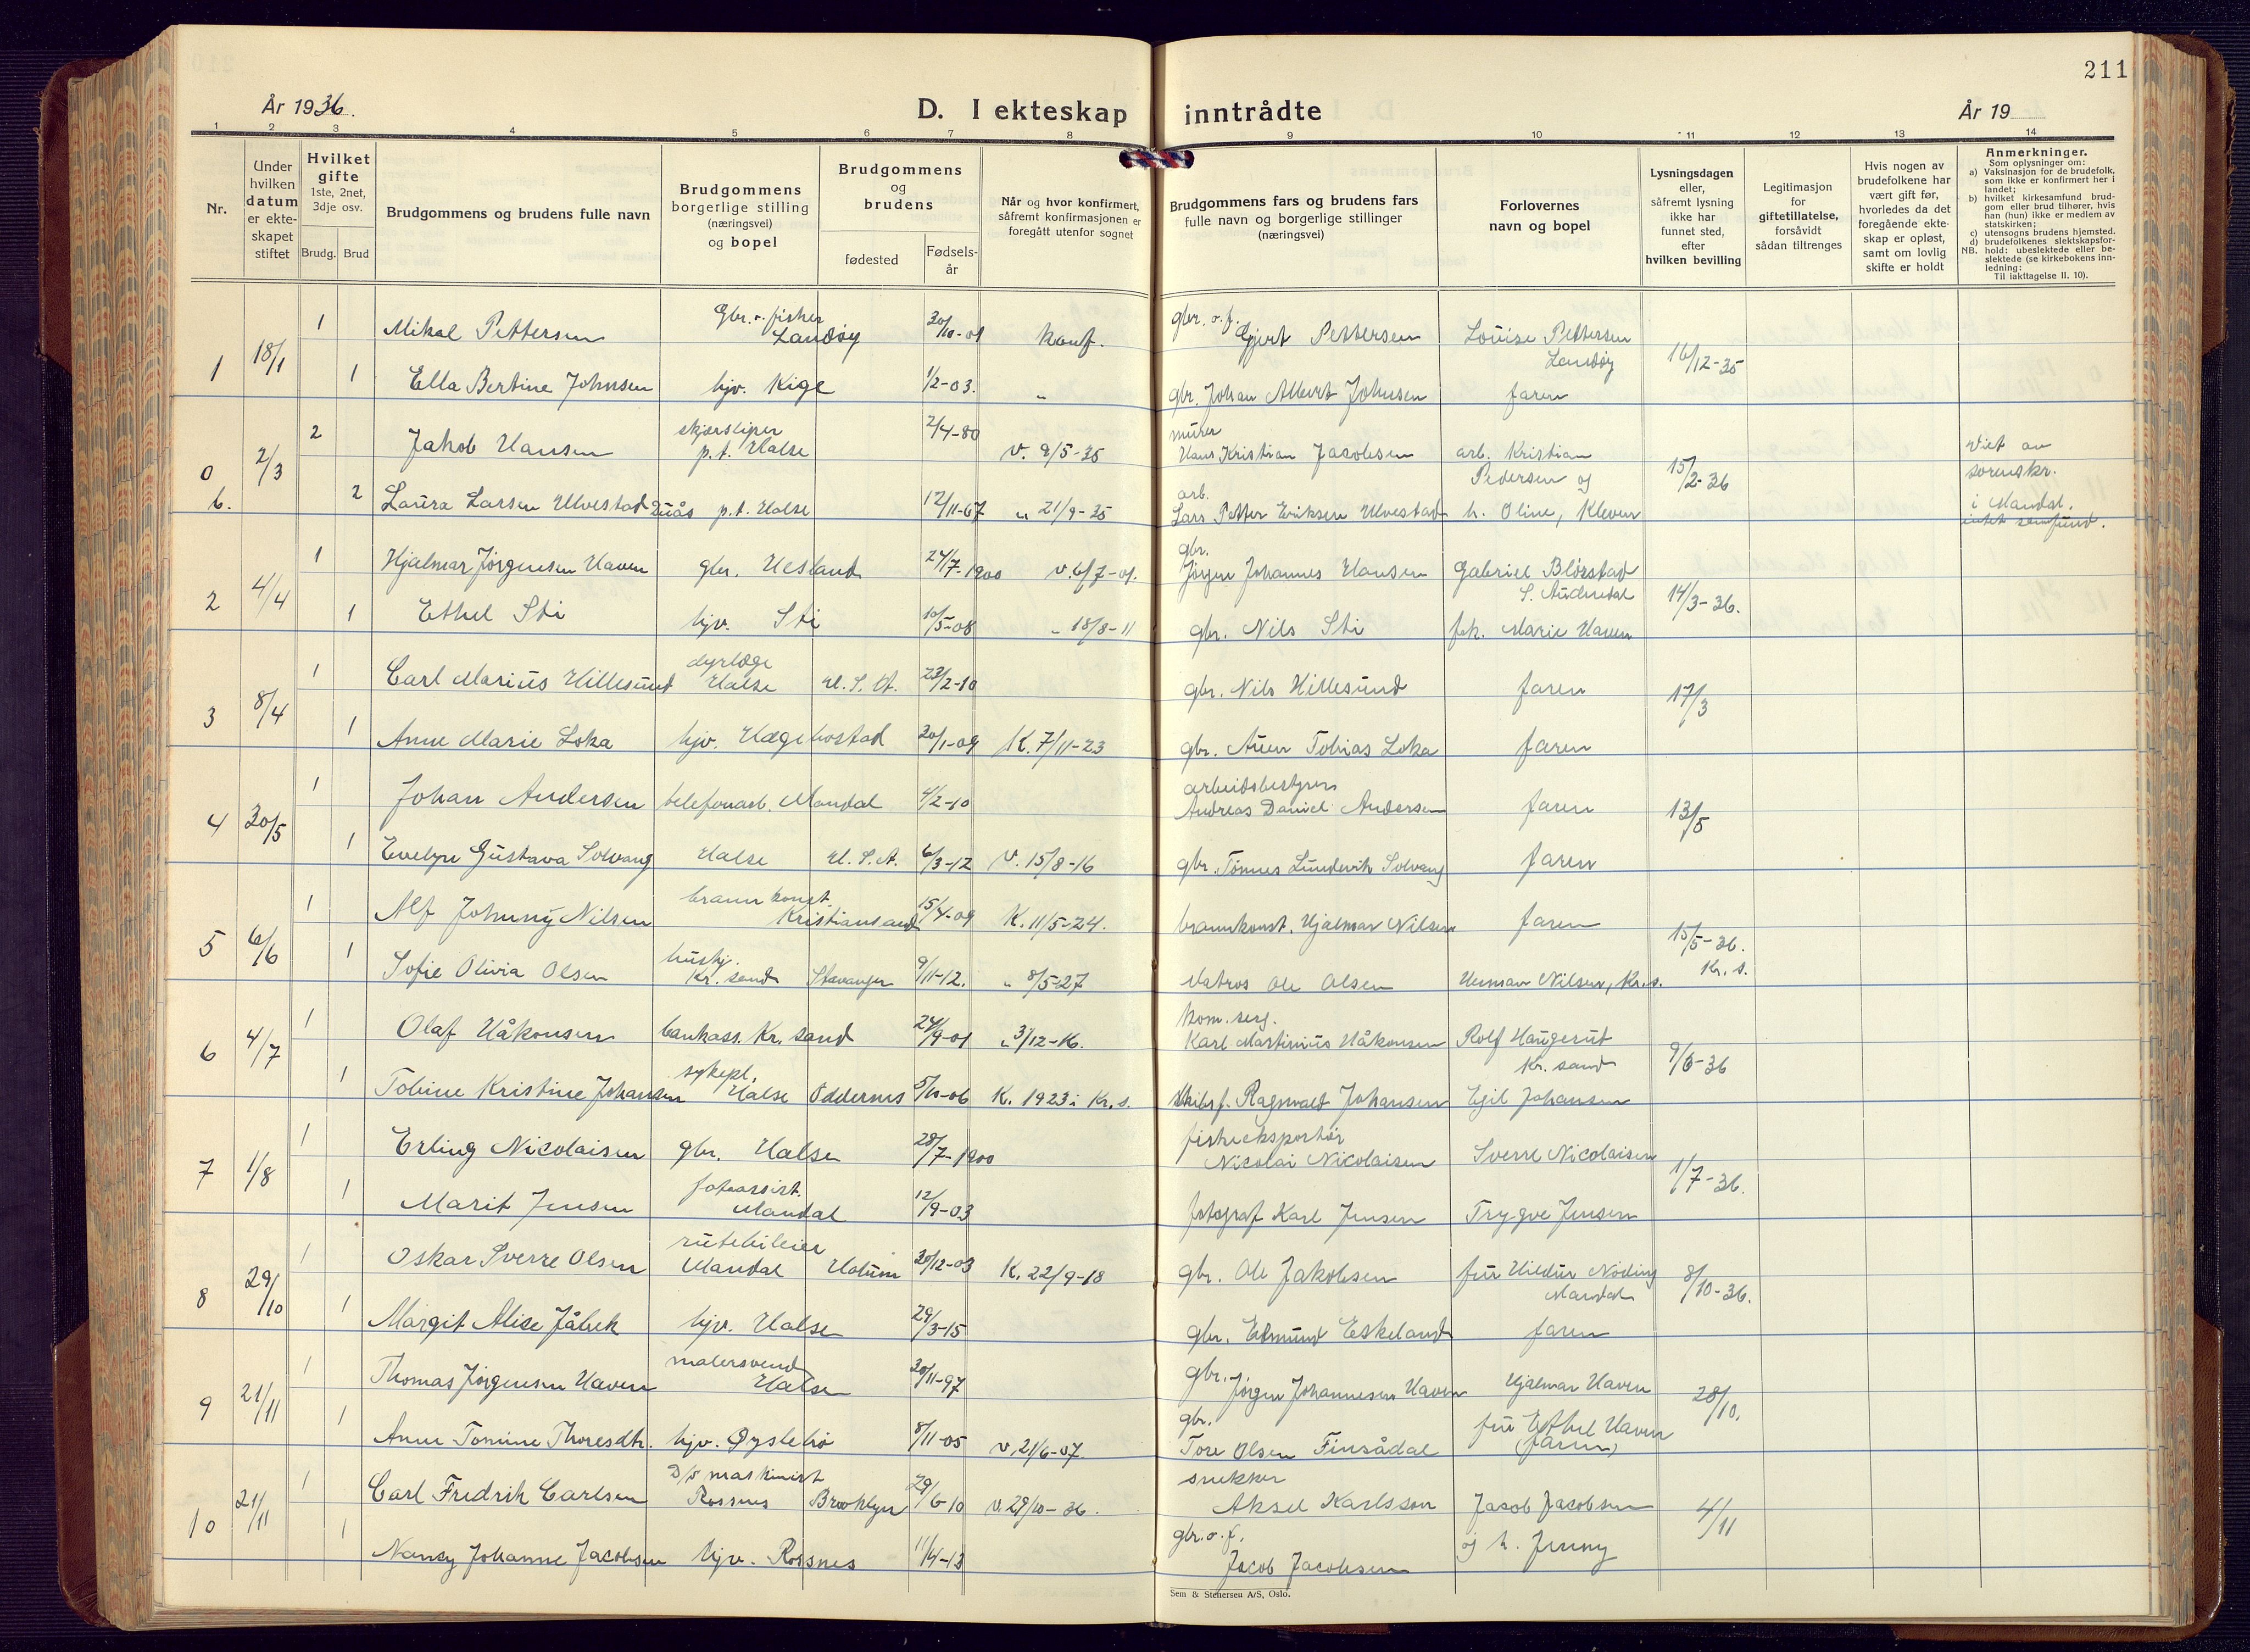 211
År 1936.
D. I ekteskap inntrådte
År 19
1 2 3 4 5 6 7 8 9 10 11 12 13 14
Nr.
Under hvilken datum er ekteskapet stiftet
Hvilket gifte
1ste, 2net, 3dje osv.
Brudg. Brud
Brudgommens og brudens fulle navn
Brudgommens borgerlige stilling (næringsvei) og bopel
Brudgommens og brudens
fødested
Fødselsår
Når og hvor konfirmert, såfremt konfirmasjonen er foregått utenfor sognet
Brudgommens fars og brudens fars fulle navn og borgerlige stillinger (næringsvei)
Forlovernes navn og bopel
Lysningsdagen eller, såfremt lysning ikke har funnet sted, efter hvilken bevilling
Legitimasjon for giftetillatelse, forsåvidt sådan tiltrenges
Hvis nogen av brudefolkene har vært gift før, hvorledes da det foregående ekteskap er opløst, samt om lovlig skifte er holdt
Anmerkninger.
Som oplysninger om:
a) Vaksinasjon for de brudefolk, som ikke er konfirmert her i landet;
b) hvilket kirkesamfund brudgom eller brud tilhører, hvis han (hun) ikke er medlem av statskirken;
c) utensogns brudens hjemsted.
d) brudefolkenes slektskapsforhold: ubeslektede eller beslektede (se kirkebokens innledning:
NB. Til iakttagelse II. 10).
1 18/1 1 Mikal Pettersen Gbr. o. fisker Landøy 30/10-01 konf. gbr. o. f. Gjert Pettersen Lovise Pettersen Landøy 16/12-35
1 Ella Bertine Johnsen hjv. Kige 1/2-03. " gbr. Johan Albert Johnsen faren
0 2/3 2 Jakob Hansen skjærsliper p.t. Halse 2/4-80 v. 9/5-35 murer Hans Kristian Jacobsen arb. Kristian Pedersen og 15/2-36 Viet av sorenskr.
6. 2 Laura Larsen Ulvestad p.t. Halse 12/11-67 " 21/9-35 arb. Lars Petter Eriksen Ulvestad h. Oline, Kleven i Mandal.
2 4/4 1 Hjalmar Jørgensen Haven gbr. Uesland 24/7-1900 v. 6/7-01. gbr. Jørgen Johannes Hansen Gabriel Blørstad S. Audnedal 14/3-36.
1 Ethel Sti hjv. Sti 10/5-08 " 18/8-11 gbr. Nils Sti frk. Marie Haven
3 8/4 1 Carl Marius Hillesund dyrlæge Halse U. S. A. 23/2-10 gbr. Nils Hillesund faren 17/3
1 Anne Marie Loka hjv. Hægebostad 20/1-09 K. 7/11-23 gbr. Auen Tobias Loka faren
4 30/5 1 Johan Andersen telefonarb. Mandal 4/2-10 arbeidsbestyrer Andreas Daniel Andersen faren 13/5
1 Evelyn Gustava Solvang Halse U. S. A. 6/3-12 v. 15/8-16 gbr. Tønnes Lundevik Solvang faren
5 6/6 1 Alf Johnny Nilsen brannkonst. Kristiansand 15/4-09 K. 11/5-24. brannkonst. Hjalmar Nilsen faren 15/5-36. Kr. s.
1 Sofie Olivia Olsen hushj. Kr. sand Stavanger 9/11-12. " 8/5-27 Matros Ole Olsen Herman Nilsen, Kr. s.
6 4/7 1 Olaf Håkonsen bankass. Kr. sand 24/9-01 " 3/12-16. kom. serg. Karl Martinius Håkonsen Rolf Haugerut Kr. sand 9/6-36
1 Tobine Kristine Johansen sykepl. Halse Oddernes 5/10-06 K. 1923 i Kr. s. Skibsf. Ragnvald Johansen Egil Johansen
7 1/8 1 Erling Nicolaisen gbr. Halse 28/7-1900 fiskeeksportør Nicolai Nicolaisen Sverre Nicolaisen 1/7-36.
1 Marit Jensen fotoassist. Mandal 12/9-03 fotograf Karl Jensen Trygve Jensen
8 29/10 1 Oskar Sverre Olsen rutebileier Mandal Holum 30/12-03 K. 22/9-18 gbr. Ole Jakobsen fru Hildur Nøding Mandal 8/10-36.
1 Margit Alise Jåbæk hjv. Halse 29/3-15 gbr. Edmund Eskeland faren
9 21/11 1 Thomas Jørgensen Haven malersvend Halse 30/11-97 gbr. Jørgen Johannesen Haven Hjalmar Haven 28/10.
1 Anne Tomine Thoresdtr. hjv. Øyslebø 8/11-05 v. 21/6-07 gbr. Tore Olsen Finsådal fru Ethel Haven (faren)
10 21/11 1 Carl Fredrik Carlsen D/S maskinist Rossnes Brooklyn 29/6-10 v. 29/10-36. snekker Aksel Karlsson Jacob Jacobsen 4/11
1 Nancy Johanne Jacobsen hjv. Rossnes 11/4-13 gbr. o. f. Jacob Jacobsen og h. Jenny
Sem & Stenersen A/S, Oslo.